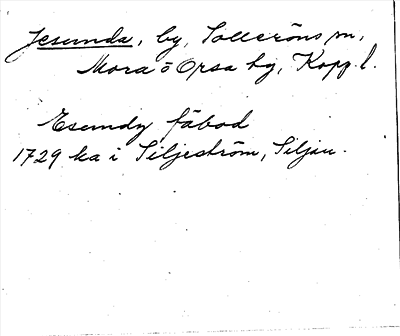 Jesunda, by, Solleröns sn,
Mora o Orsa bg, Kopp. l.
Esundz fäbod
1729 ka i Siljeström, Siljan.